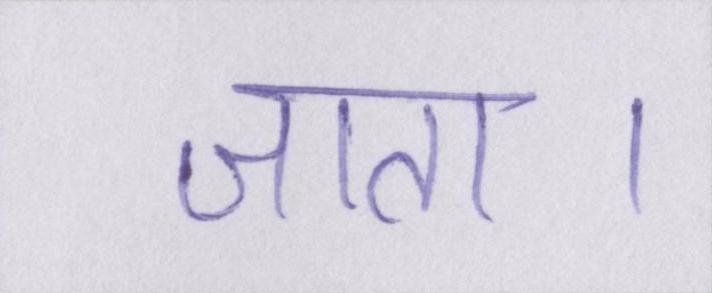 जाता ।